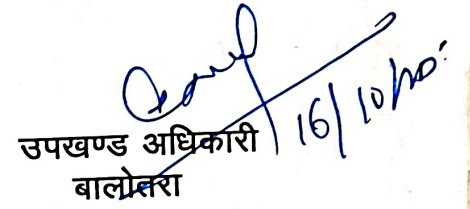 16/10/20
उपखण्ड अधिकारी
बालोतरा